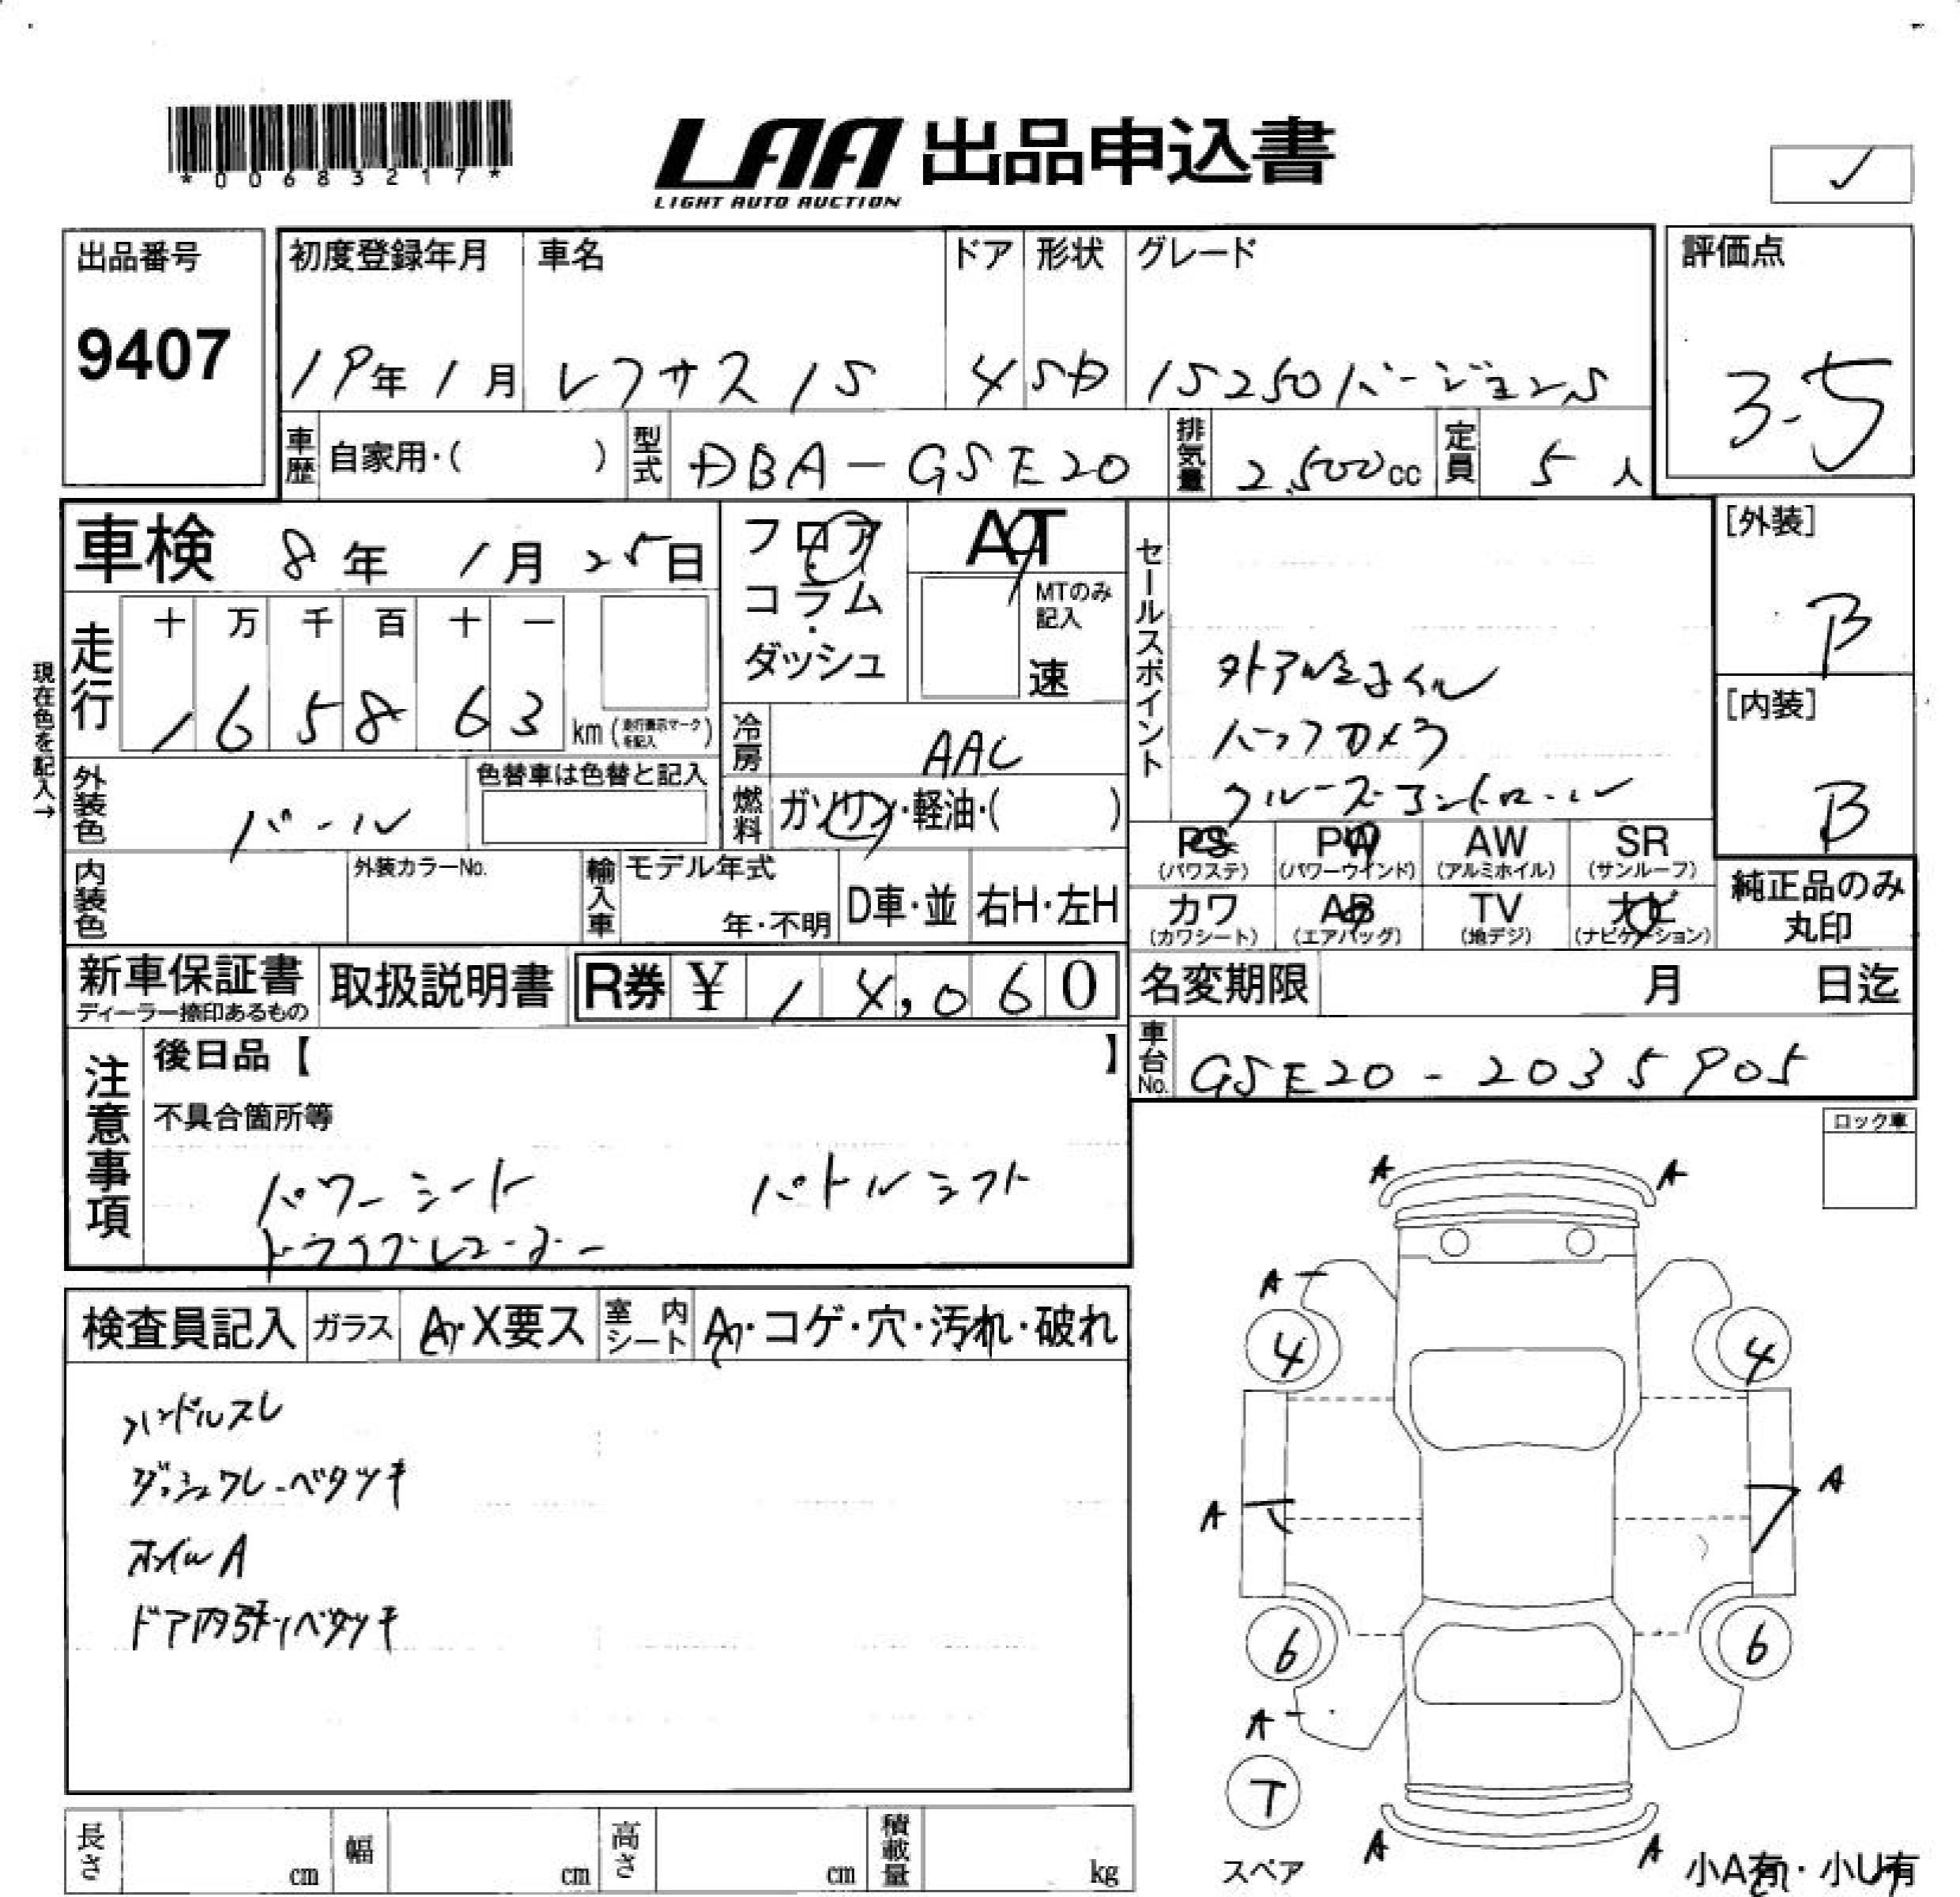 *00683217*
LAA 出品申込書
LIGHT AUTO AUCTION
出品番号
9407
初度登録年月
19年1月
車名
レクサスIS
ドア
4
形状
SD
グレード
IS250バージョンS
評価点
3.5
車歴
自家用・( )
型式
DBA-GSE20
排気量
2,500cc
定員
5人
車検 8年 1月 25日
フロア
・
コラム
・
ダッシュ
AT
MTのみ
記入
速
セールスポイント
外アルミホイル
バックカメラ
クルーズコントロール
[外装]
B
[内装]
B
現在色を記入→
走行
十 万 千 百 十 一
1 6 5 8 6 3
km (走行表示マークを記入)
冷房
AAC
外装色
パール
色替車は色替と記入
燃料
ガソリン・軽油・( )
内装色
外装カラーNo.
輸入車
モデル年式
年・不明
D車・並
右H・左H
PS
(パワステ)
PW
(パワーウインド)
AW
(アルミホイル)
SR
(サンルーフ)
カワ
(カワシート)
AB
(エアバッグ)
TV
(地デジ)
ナビ
(ナビゲーション)
純正品のみ
丸印
新車保証書
ディーラー捺印あるもの
取扱説明書
R券 ¥ 14,060
名変期限
月 日迄
車台No.
GSE20-2035905
注意事項
後日品【 】
不具合箇所等
パワーシート パドルシフト
ドライブレコーダー
ロック車
検査員記入
ガラス
A・X要ス
室内シート
A・コゲ・穴・汚れ・破れ
ハンドルスレ
ダッシュワレ-ベタツキ
ホイルA
ドア内張りベタツキ
A A
A
4 4
A A
6 6
A
T
スペア
A A
小A有・小U有
長さ
cm
幅
cm
高さ
cm
積載量
kg